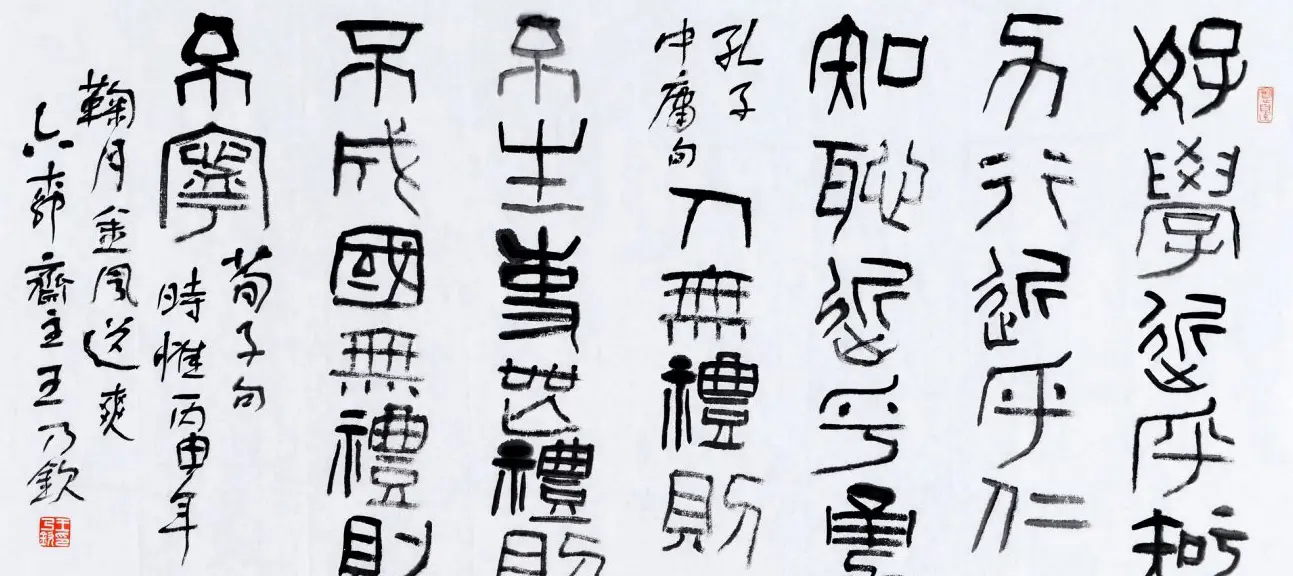 好學近乎智
力行近乎仁
知恥近乎勇
孔子
中庸句
人無禮則
不生事無禮則
不成國無禮則
不寧
荀子句
時惟丙申年
鞠月金風送爽
六齋主王乃欽
王乃欽印